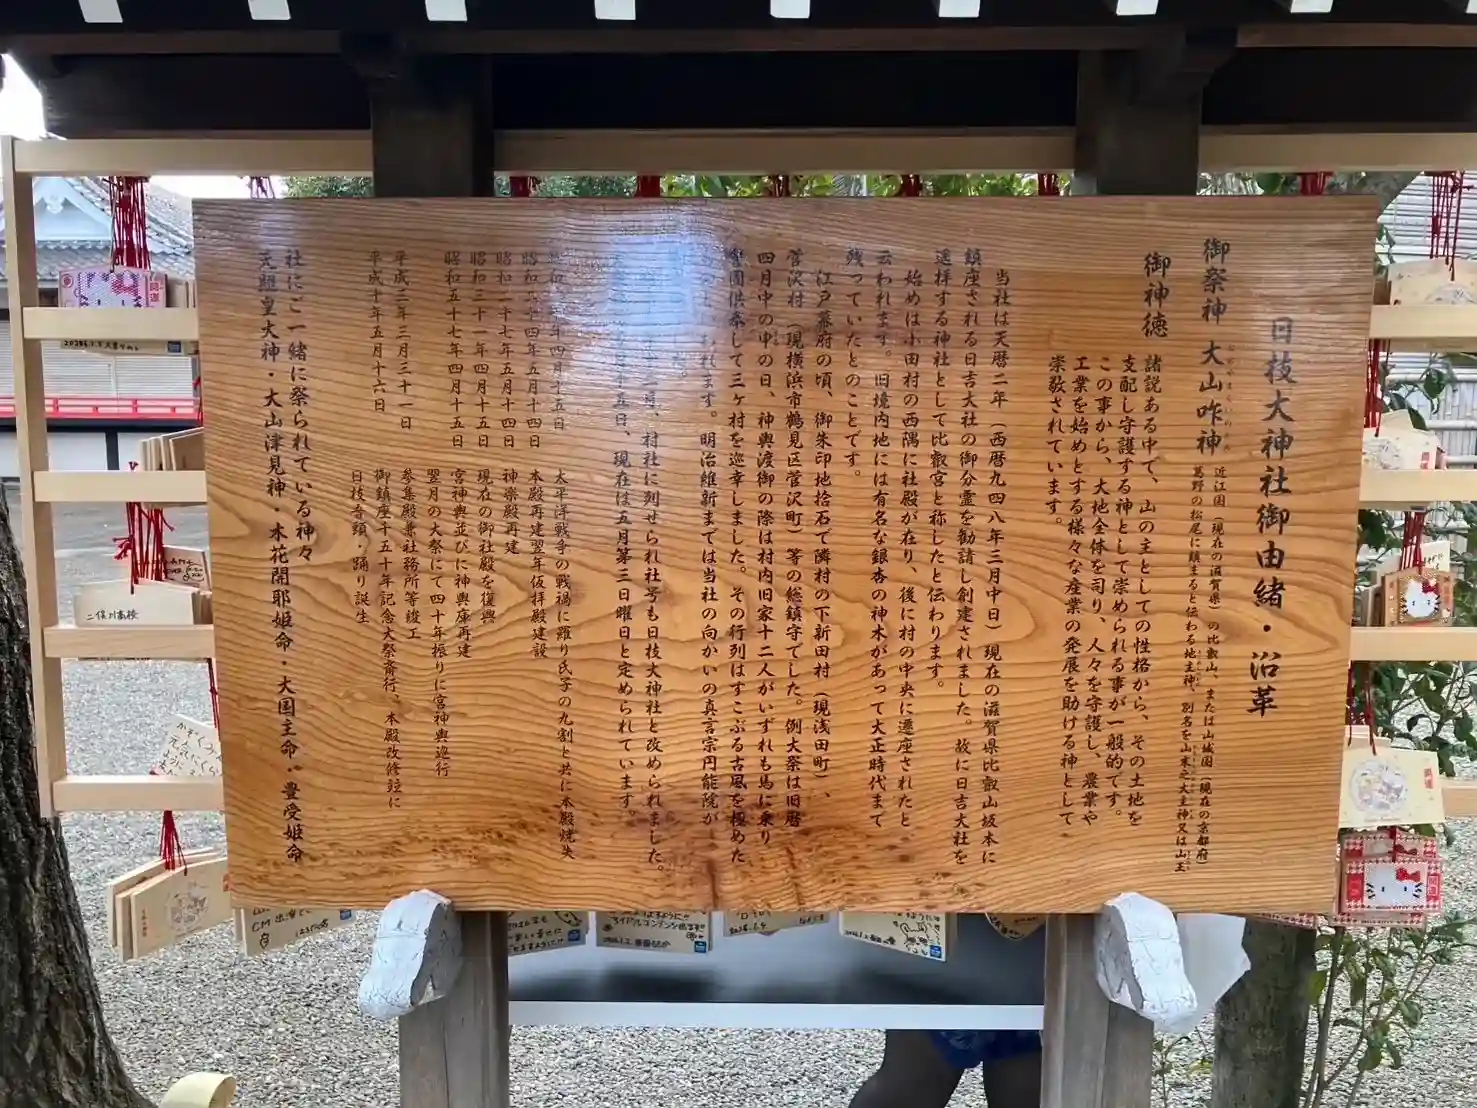 日枝大神社御由緒・沿革
御祭神 大山咋神
近江国(現在の滋賀県)の比叡山、または山城国(現在の京都府)
葛野の松尾に鎮まると伝わる地主神、別名を山末之大主神又は山王
御神徳
諸説ある中で、山の主としての性格から、その土地を
支配し守護する神として崇められる事が一般的です。
この事から、大地全体を司り、人々を守護し、農業や
工業を始めとする様々な産業の発展を助ける神として
崇敬されています。
当社は天暦二年(西暦九四八年三月中日)現在の滋賀県比叡山坂本に
鎮座される日吉大社の御分霊を勧請し創建されました。故に日吉大社を
遥拝する神社として比叡宮と称したと伝わります。
始めは小田村の西隅に社殿が在り、後に村の中央に遷座されたと
云われます。旧境内地には有名な銀杏の神木があって大正時代まで
残っていたとのことです。
江戸幕府の頃、御朱印地拾石で隣村の下新田村(現浅田町)、
菅沢村(現横浜市鶴見区菅沢町)等の総鎮守でした。例大祭は旧暦
四月中の中の日、神輿渡御の際は村内旧家十二人がいずれも馬に乗り
に供奉して三ヶ村を巡幸しました。その行列はすこぶる古風を極めた
われます。明治維新までは当社の向かいの真言宗円能院が
村社に列せられ社号も日枝大神社と改められました。
十五日、現在は五月第三日曜日と定められています。
年四月十五日 太平洋戦争の戦禍に罹り氏子の九割と共に本殿焼失
昭和二十四年五月十四日 本殿再建翌年仮拝殿建設
昭和二十七年五月十四日 神楽殿再建
昭和三十一年四月十五日 現在の御社殿を復興
昭和五十七年四月十五日 宮神輿並びに神輿庫再建
翌月の大祭にて四十年振りに宮神輿巡行
平成三年三月三十一日 参集殿兼社務所等竣工
平成十年五月十六日 御鎮座千五十年記念大祭斎行、本殿改修並に
日枝音頭・踊り誕生
社にご一緒に祭られている神々
天照皇大神・大山津見神・木花開耶姫命・大国主命・豊受姫命
開運
二俣川高校